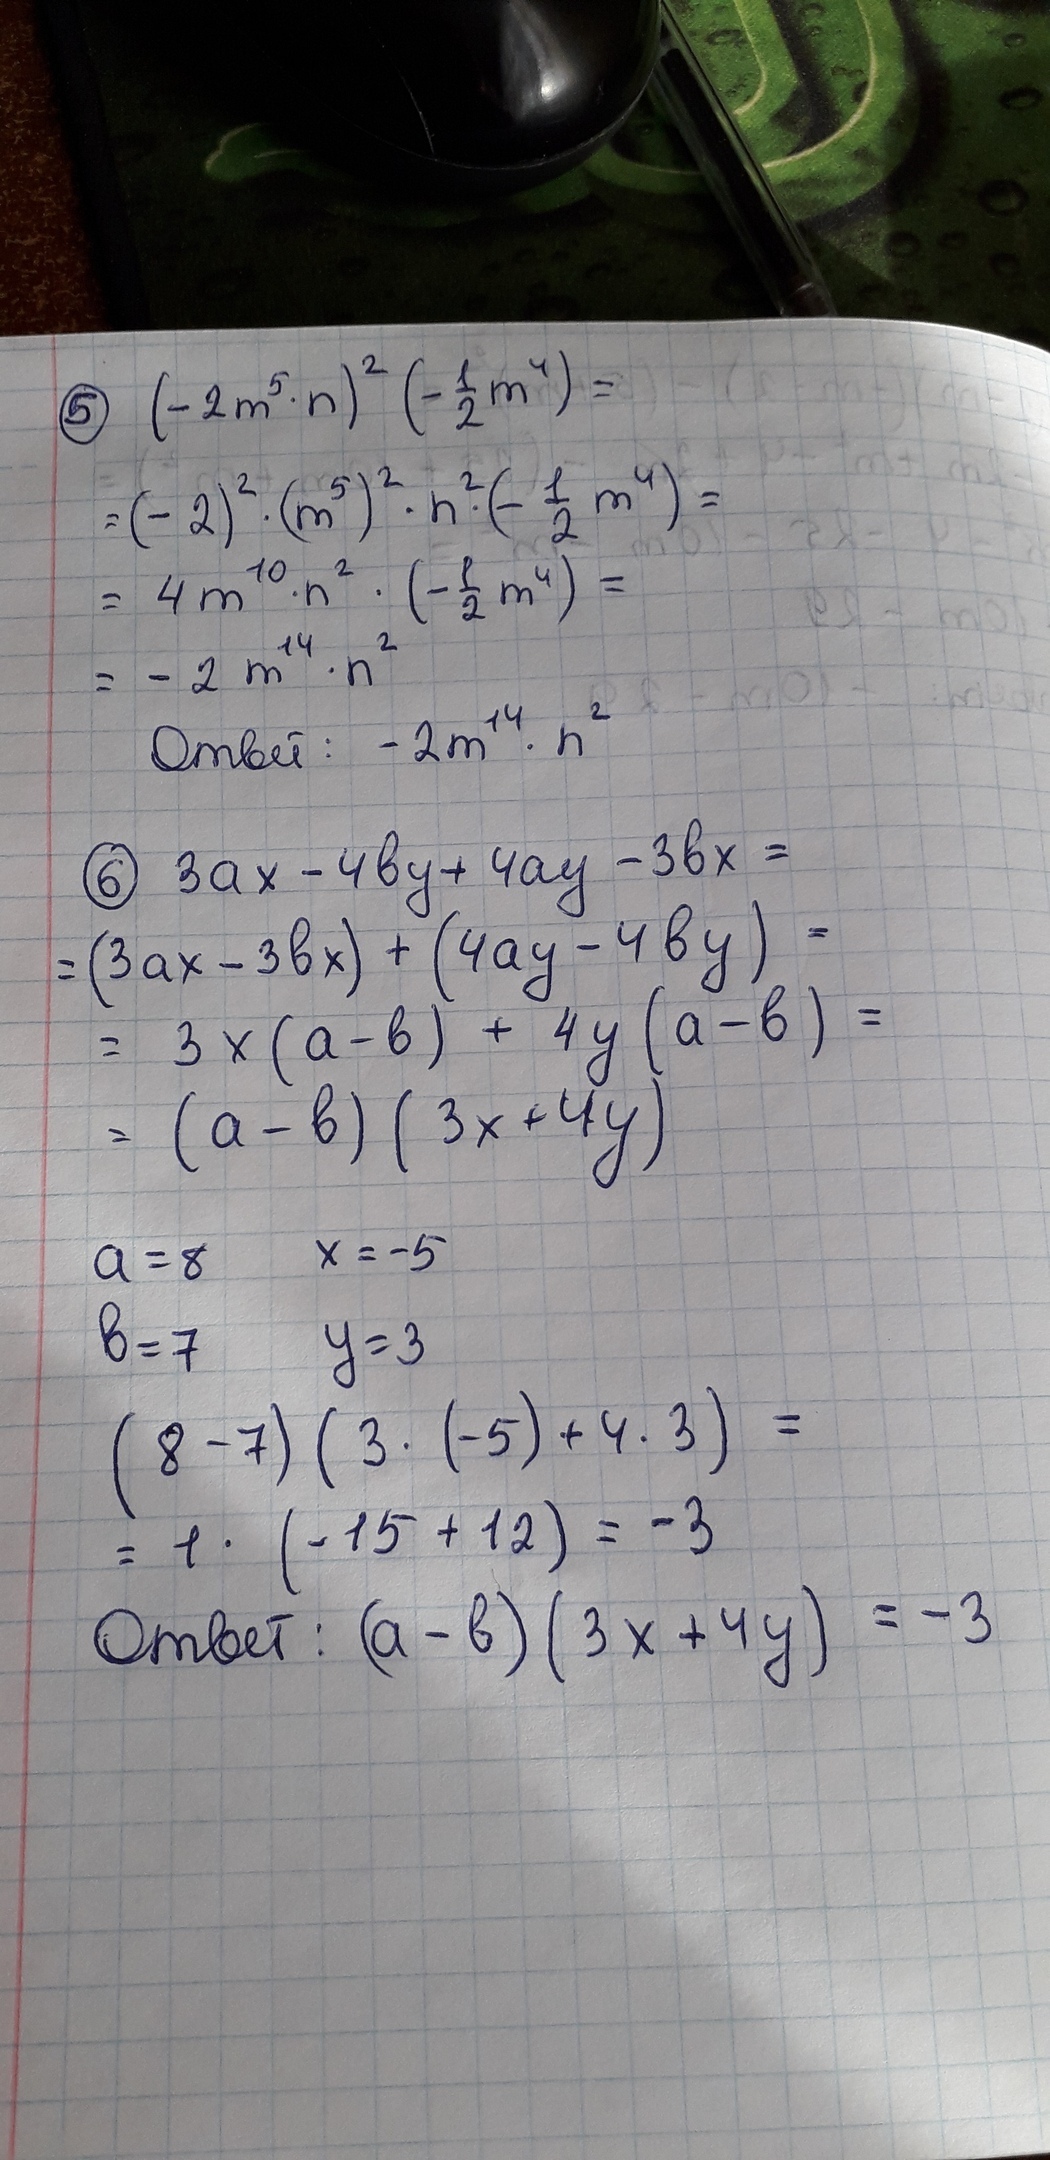 ⑤ (-2m⁵·n)² (-1/2 m⁴) =
= (-2)²·(m⁵)²·n²·(-1/2 m⁴) =
= 4m¹⁰·n² · (-1/2 m⁴) =
= -2m¹⁴·n²
Ответ: -2m¹⁴·n²
⑥ 3ax - 4вy + 4ay - 3вx =
= (3ax - 3вx) + (4ay - 4вy) =
= 3x(a-в) + 4y(a-в) =
= (a-в)(3x+4y)
a = 8 x = -5
в = 7 y = 3
(8-7)(3·(-5)+4·3) =
= 1·(-15+12) = -3
Ответ: (a-в)(3x+4y) = -3